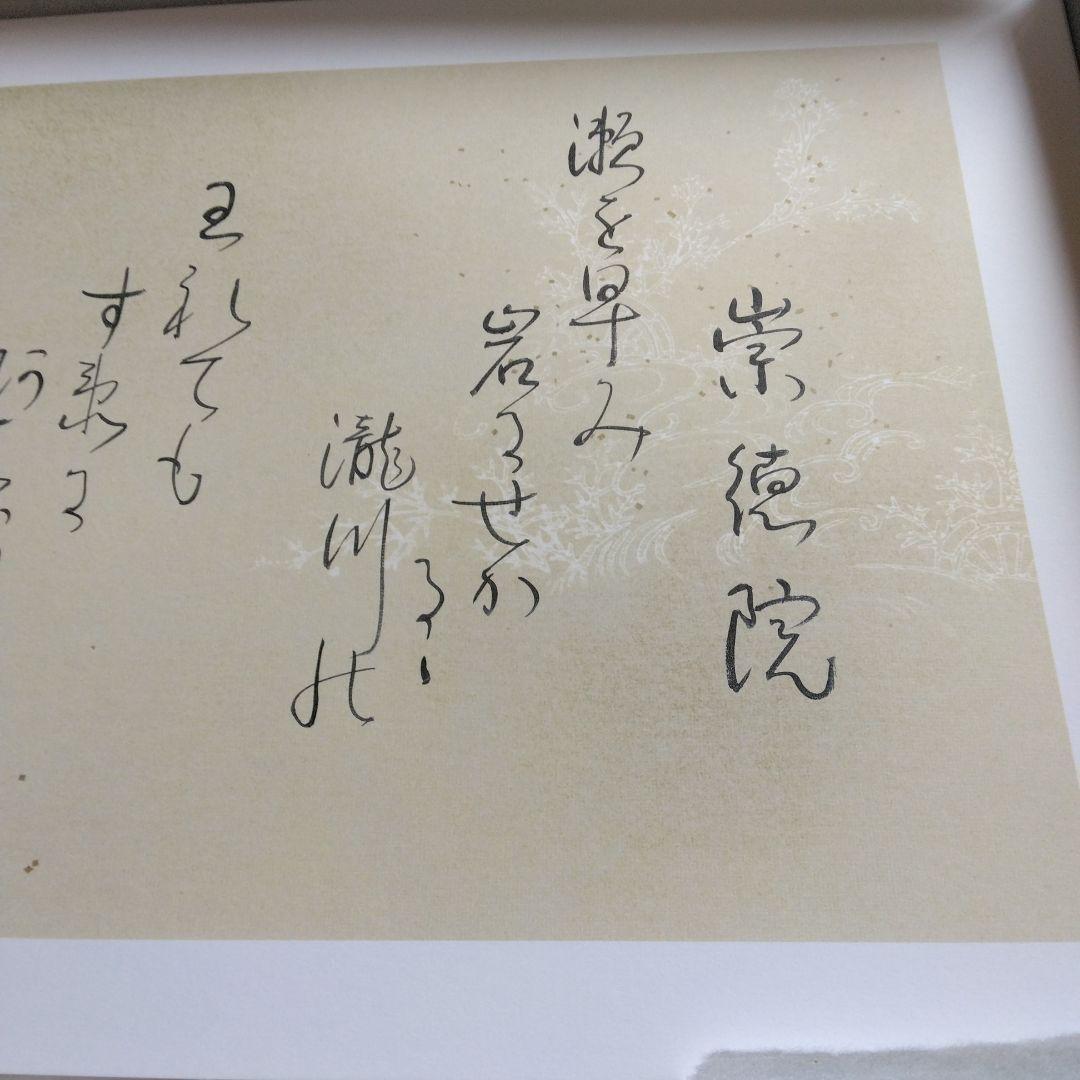 崇徳院
瀬を早み
岩にせか
るゝ
瀧川の
王れても
す衛に